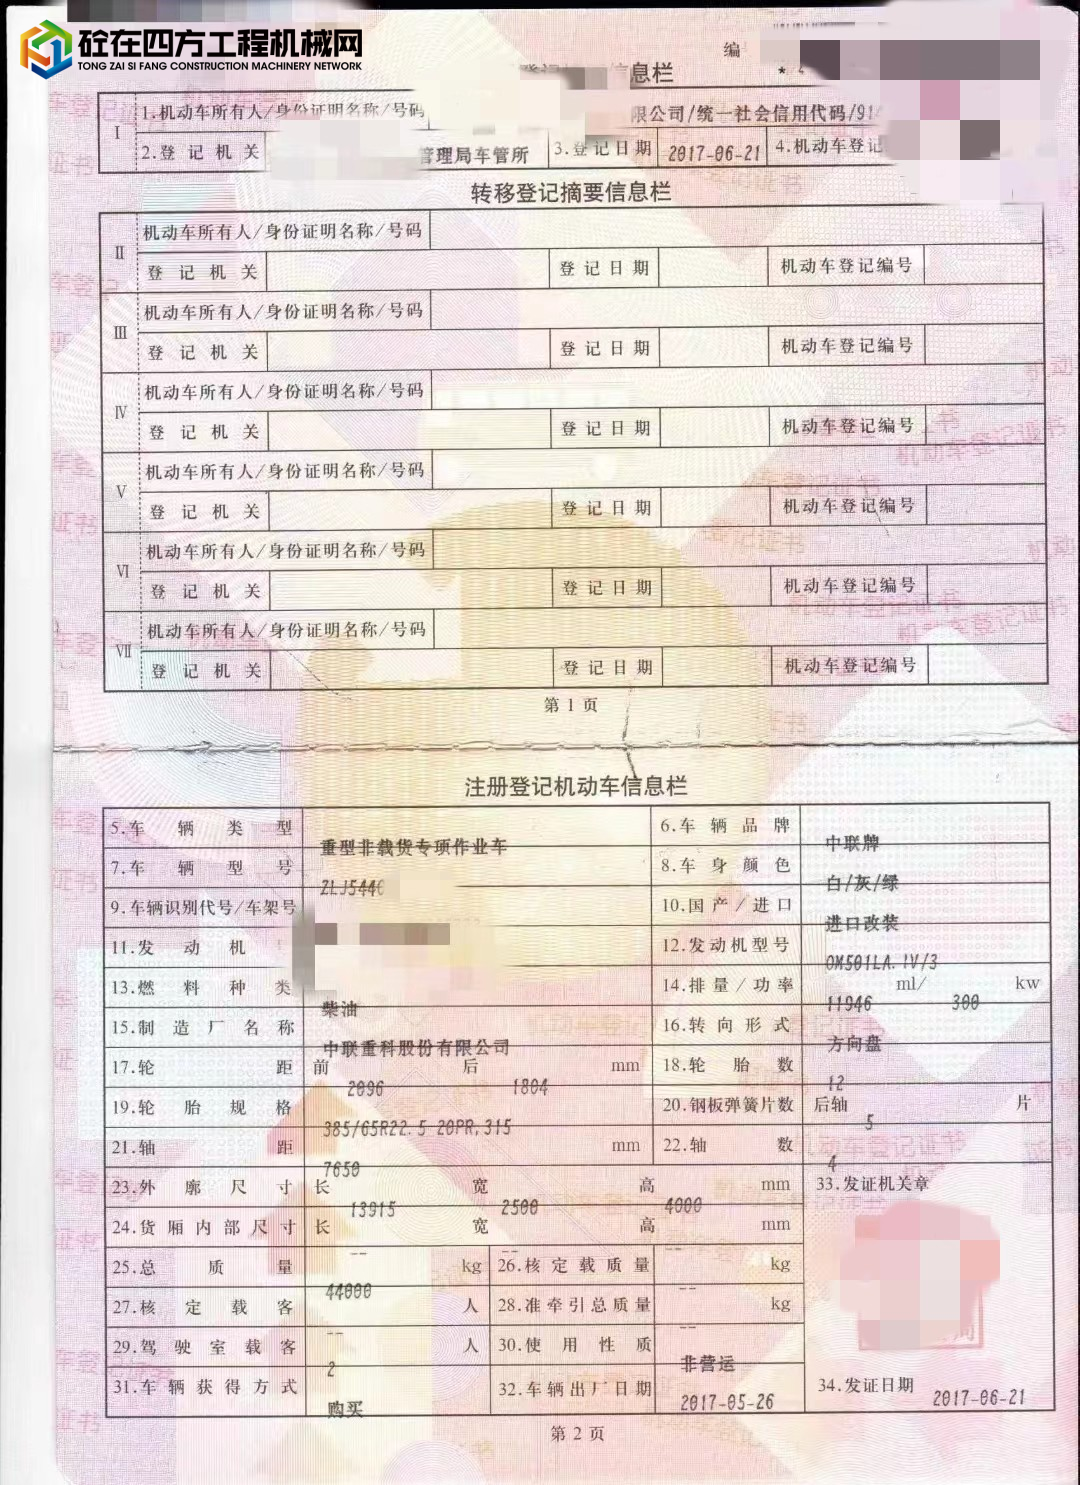 砼在四方工程机械网
TONG ZAI SI FANG CONSTRUCTION MACHINERY NETWORK
编
息栏
Ⅰ
1.机动车所有人/身份证明名称/号码
限公司/统一社会信用代码/91
2.登记机关
管理局车管所
3.登记日期
2017-06-21
4.机动车登记
转移登记摘要信息栏
Ⅱ
机动车所有人/身份证明名称/号码
登记机关 登记日期 机动车登记编号
Ⅲ
机动车所有人/身份证明名称/号码
登记机关 登记日期 机动车登记编号
Ⅳ
机动车所有人/身份证明名称/号码
登记机关 登记日期 机动车登记编号
Ⅴ
机动车所有人/身份证明名称/号码
登记机关 登记日期 机动车登记编号
Ⅵ
机动车所有人/身份证明名称/号码
登记机关 登记日期 机动车登记编号
Ⅶ
机动车所有人/身份证明名称/号码
登记机关 登记日期 机动车登记编号
第 1 页
注册登记机动车信息栏
5.车辆类型 重型非载货专项作业车 6.车辆品牌 中联牌
7.车辆型号 ZLJ544 8.车身颜色 白/灰/绿
9.车辆识别代号/车架号 10.国产/进口 进口改装
11.发动机 12.发动机型号 OM501LA.IV/3
13.燃料种类 柴油 14.排量/功率 11946 ml/ 300 kw
15.制造厂名称 中联重科股份有限公司 16.转向形式 方向盘
17.轮距 前 2096 后 1804 mm 18.轮胎数 12
19.轮胎规格 385/65R22.5 20PR,315 20.钢板弹簧片数 后轴 5 片
21.轴距 7650 mm 22.轴数 4
23.外廓尺寸 长 13915 宽 2500 高 4000 mm 33.发证机关章
24.货厢内部尺寸 长 -- 宽 -- 高 -- mm
25.总质量 44000 kg 26.核定载质量 -- kg
27.核定载客 -- 人 28.准牵引总质量 -- kg
29.驾驶室载客 2 人 30.使用性质 非营运
31.车辆获得方式 购买 32.车辆出厂日期 2017-05-26 34.发证日期 2017-06-21
第 2 页